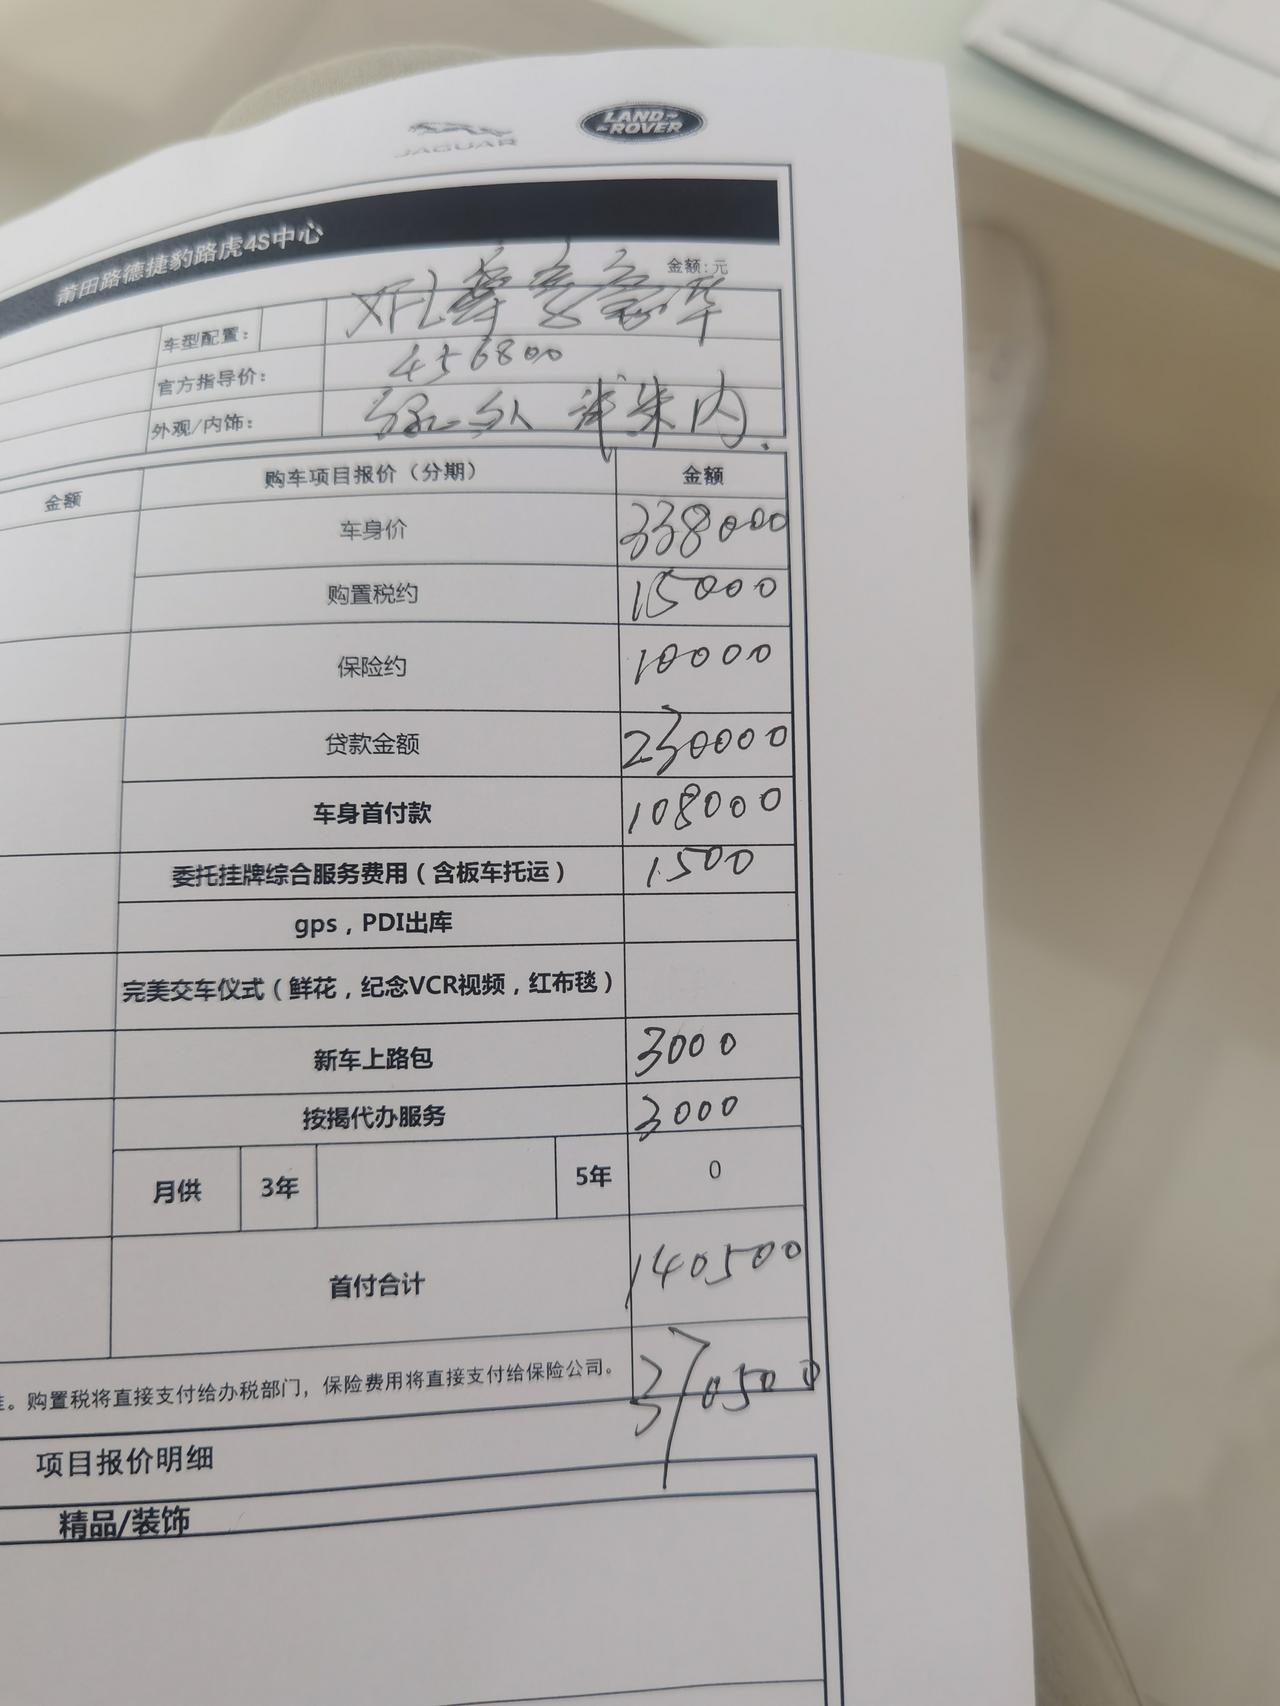 JAGUAR
LAND ROVER
莆田路德捷豹路虎4S中心
金额:元
车型配置: XFL 尊享豪华
官方指导价: 456800
外观/内饰: 内.
金额 购车项目报价（分期） 金额
车身价 338000
购置税约 15000
保险约 10000
贷款金额 230000
车身首付款 108000
委托挂牌综合服务费用（含板车托运） 1500
gps，PDI出库
完美交车仪式（鲜花，纪念VCR视频，红布毯）
新车上路包 3000
按揭代办服务 3000
月供 3年 5年 0
首付合计 140500
。购置税将直接支付给办税部门，保险费用将直接支付给保险公司。
370500
项目报价明细
精品/装饰